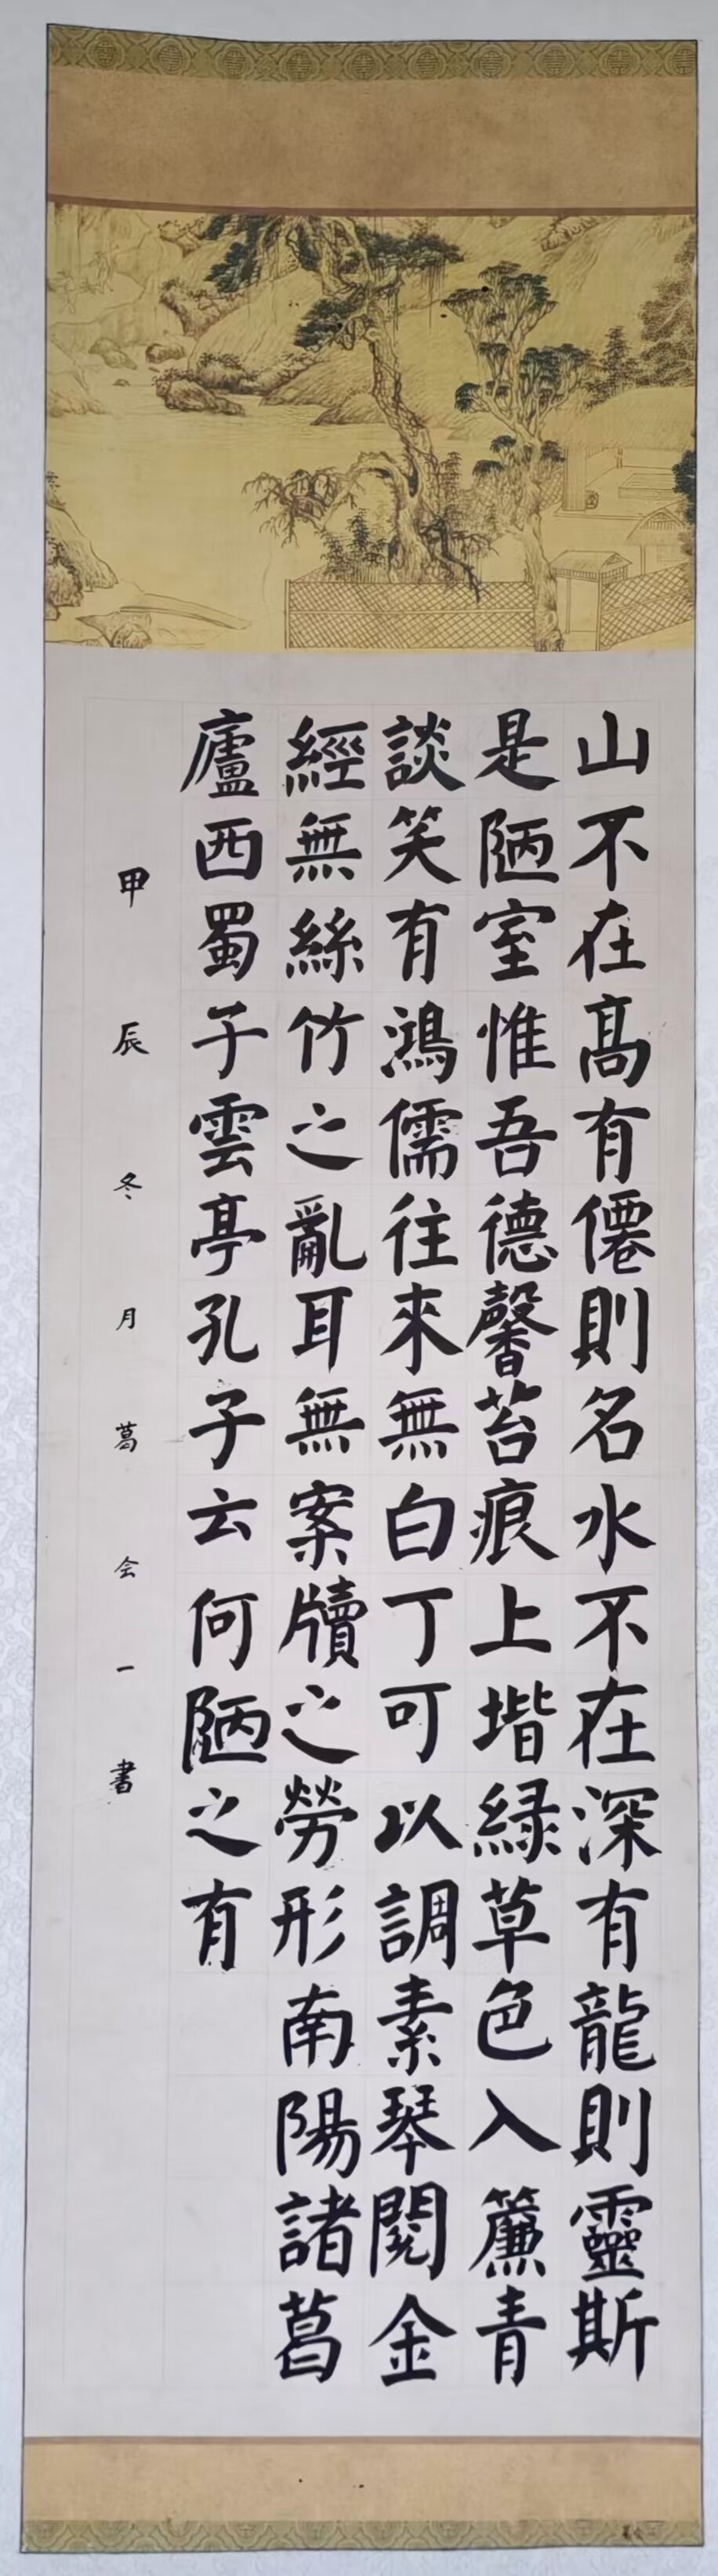 山不在高有僊則名水不在深有龍則靈斯
是陋室惟吾德馨苔痕上堦緑草色入簾青
談笑有鴻儒往來無白丁可以調素琴閱金
經無絲竹之亂耳無案牘之勞形南陽諸葛
廬西蜀子雲亭孔子云何陋之有
甲辰冬月葛会一書